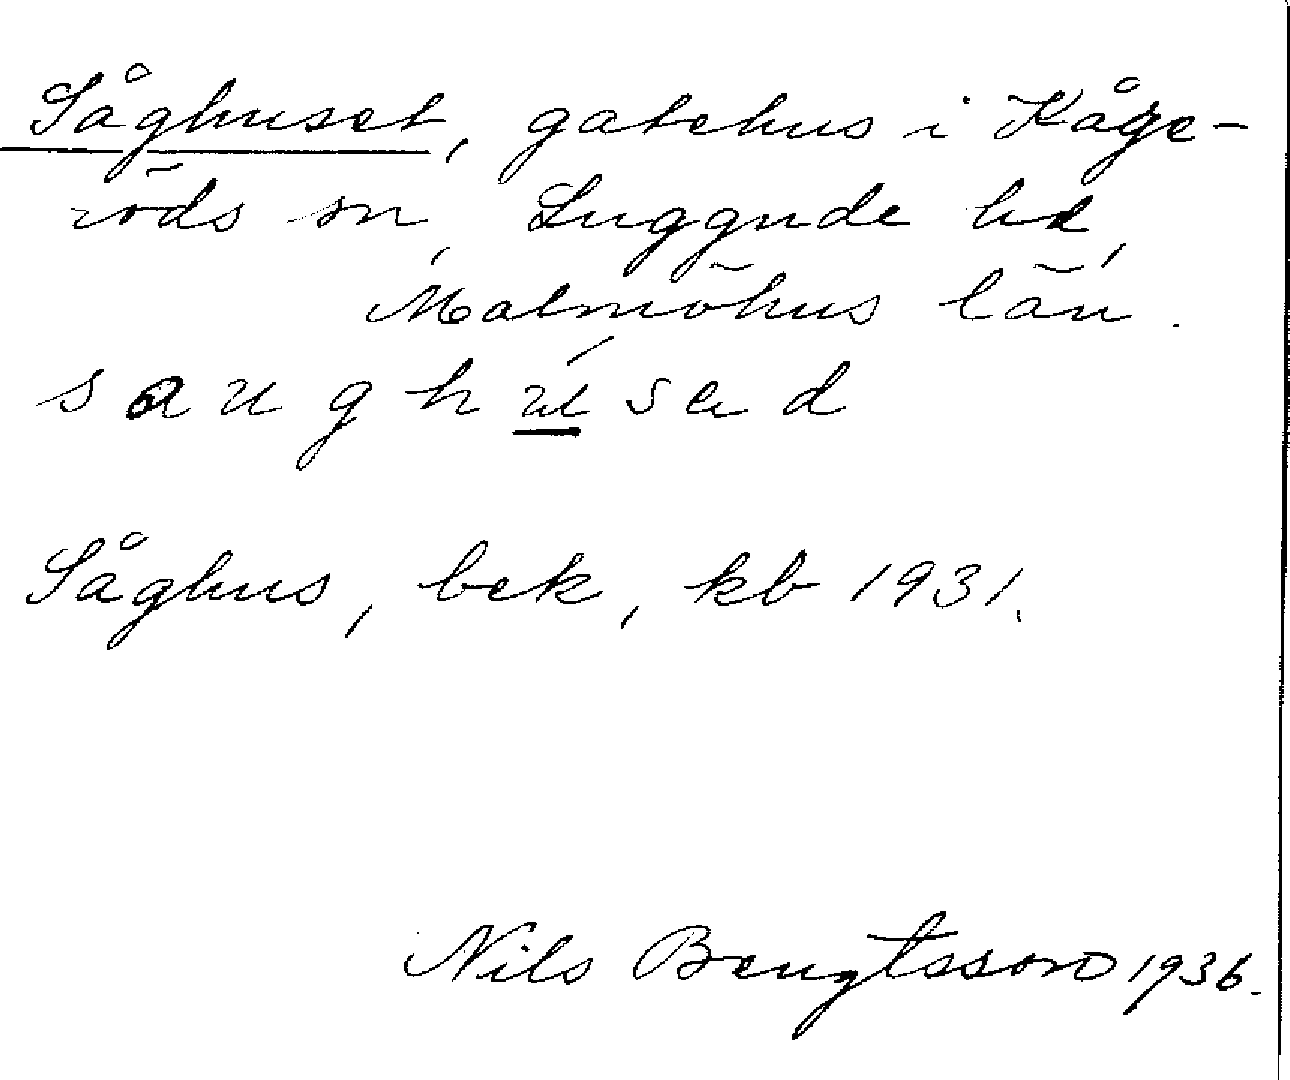 Såghuset, gatehus i Kåge-
röds sn, Luggude hd,
Malmöhus län.
s a u g h ú s a d
Såghus, bek, kb 1931.
Nils Bengtsson 1936.